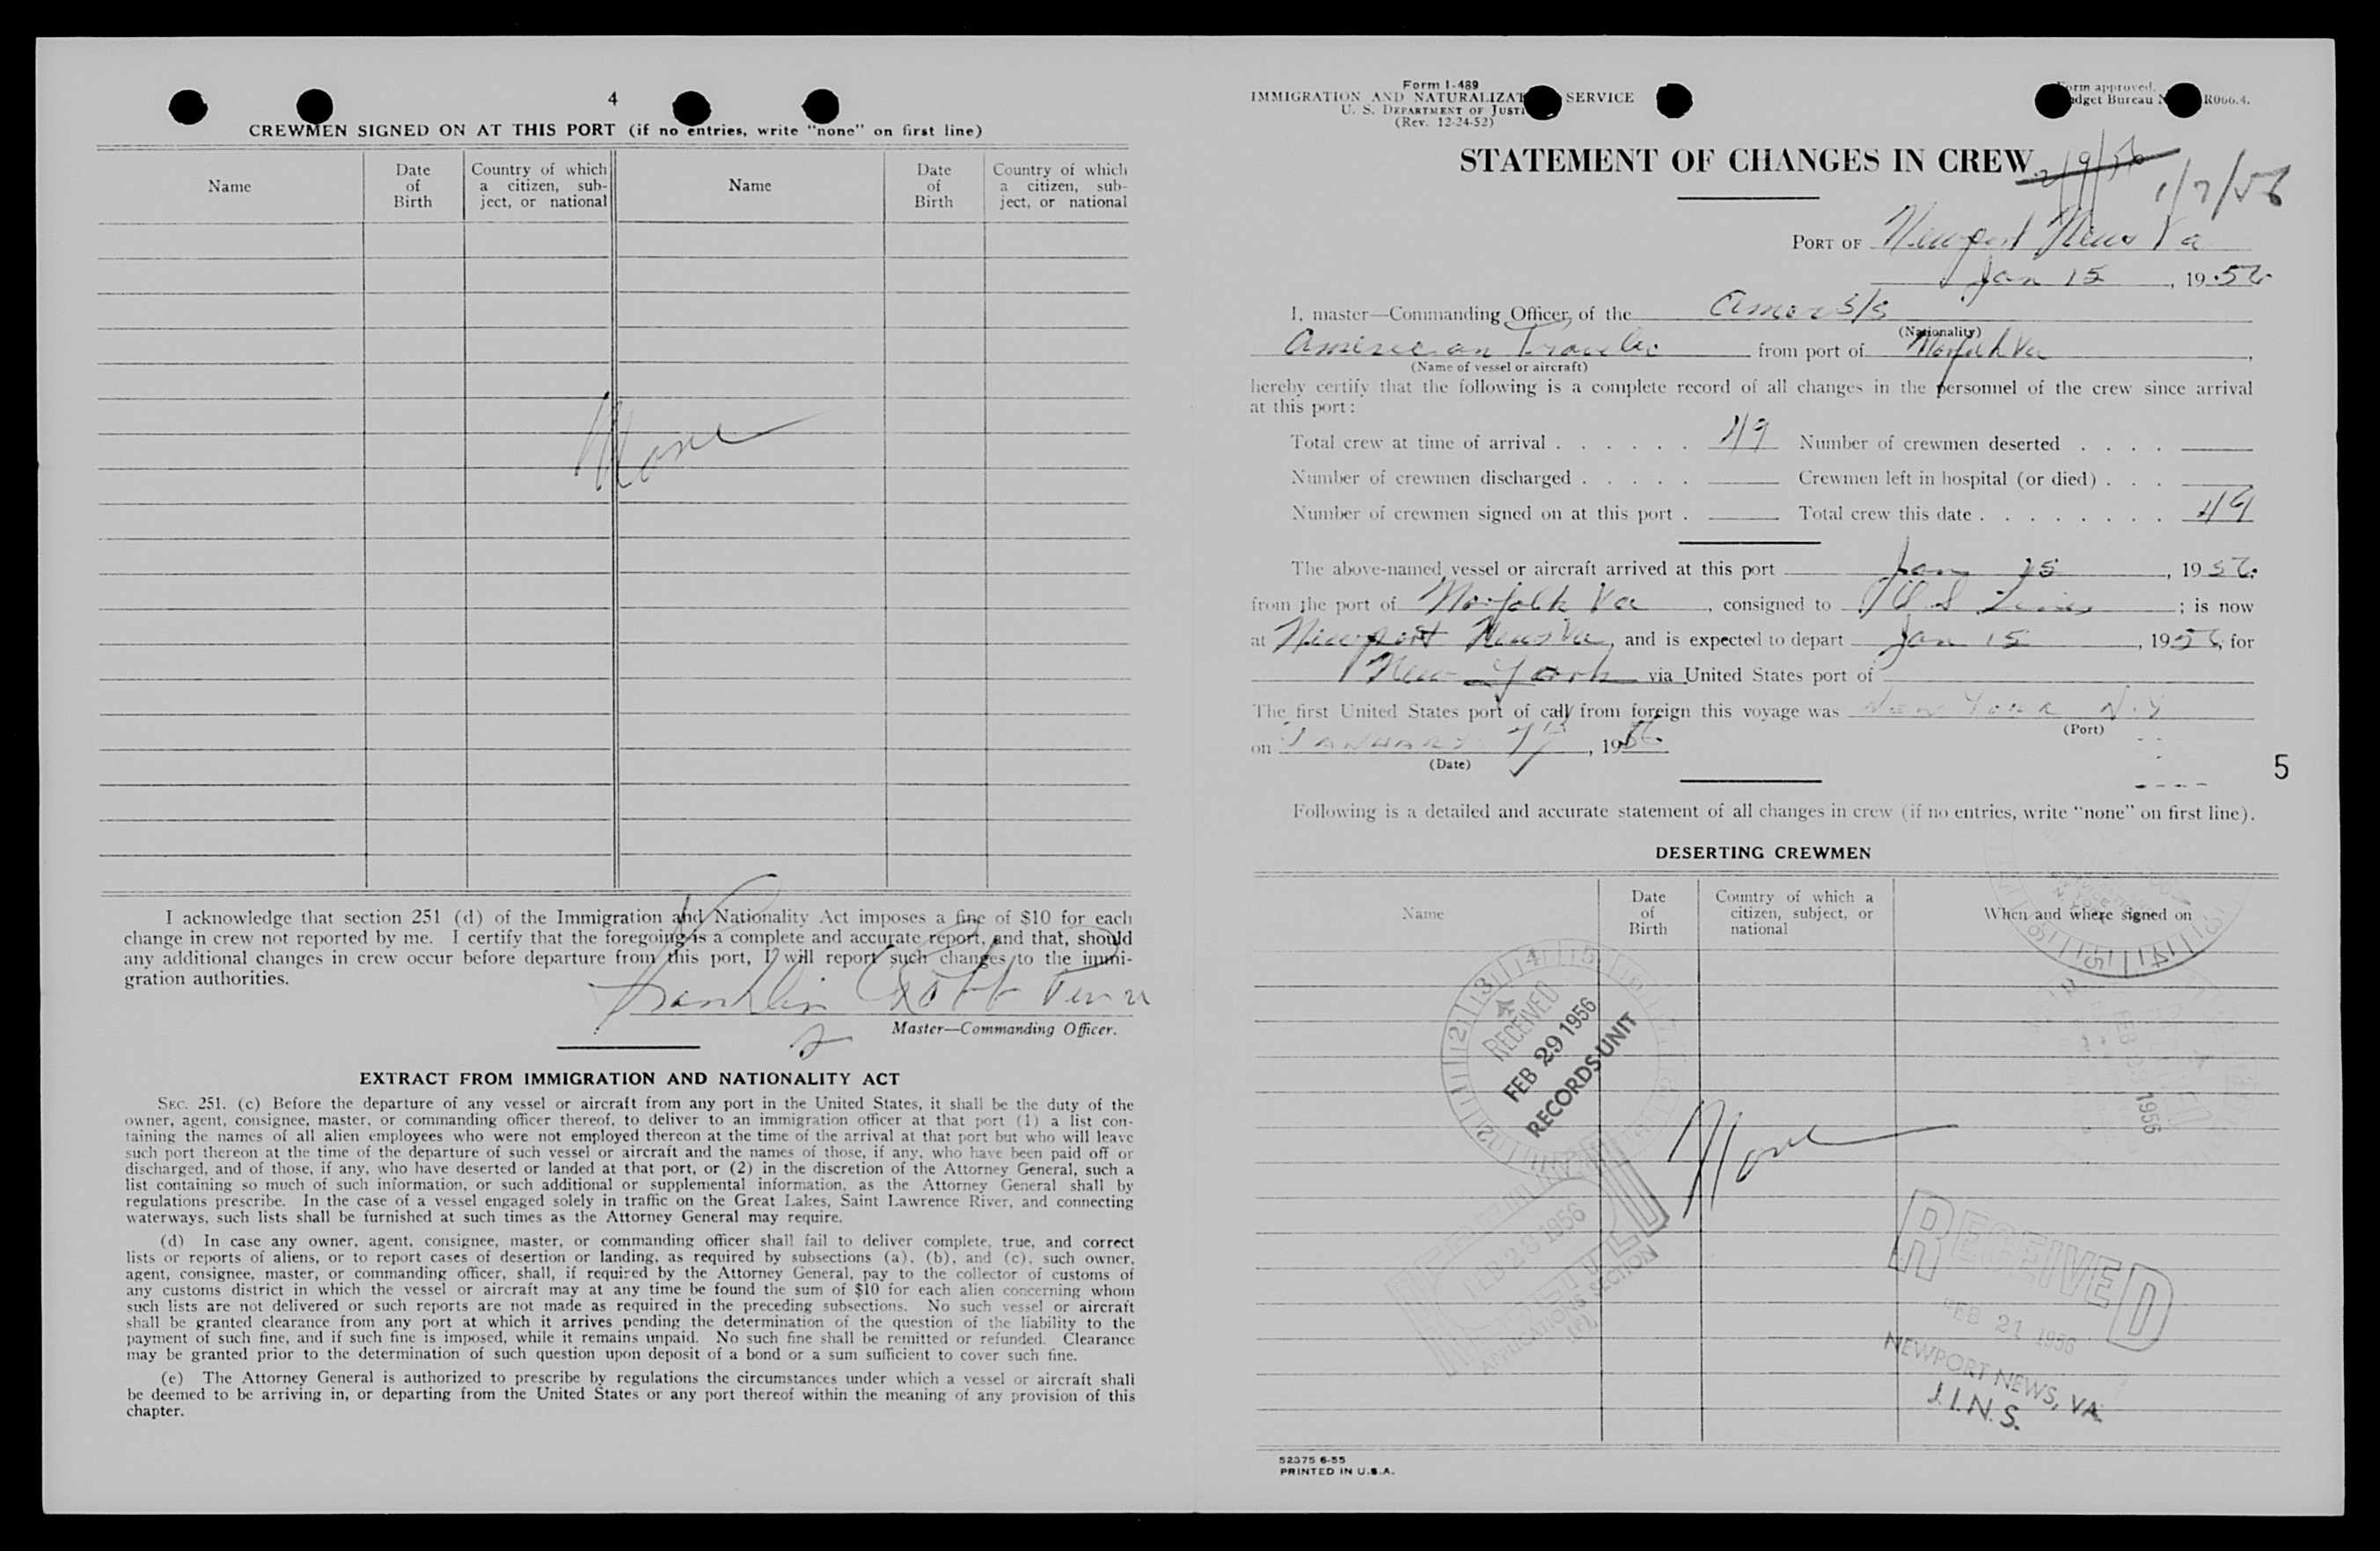 4
CREWMEN SIGNED ON AT THIS PORT (if no entries, write "none" on first line)
Name
Date of Birth
Country of which a citizen, subject, or national
Name
Date of Birth
Country of which a citizen, subject, or national
None
I acknowledge that section 251 (d) of the Immigration and Nationality Act imposes a fine of $10 for each
change in crew not reported by me. I certify that the foregoing is a complete and accurate report, and that, should
any additional changes in crew occur before departure from this port, I will report such changes to the immi-
gration authorities.
Franklin
Master—Commanding Officer.
2
EXTRACT FROM IMMIGRATION AND NATIONALITY ACT
SEC. 251. (c) Before the departure of any vessel or aircraft from any port in the United States, it shall be the duty of the
owner, agent, consignee, master, or commanding officer thereof, to deliver to an immigration officer at that port (1) a list con-
taining the names of all alien employees who were not employed thereon at the time of the arrival at that port but who will leave
such port thereon at the time of the departure of such vessel or aircraft and the names of those, if any, who have been paid off or
discharged, and of those, if any, who have deserted or landed at that port, or (2) in the discretion of the Attorney General, such a
list containing so much of such information, or such additional or supplemental information, as the Attorney General shall by
regulations prescribe. In the case of a vessel engaged solely in traffic on the Great Lakes, Saint Lawrence River, and connecting
waterways, such lists shall be furnished at such times as the Attorney General may require.
(d) In case any owner, agent, consignee, master, or commanding officer shall fail to deliver complete, true, and correct
lists or reports of aliens, or to report cases of desertion or landing, as required by subsections (a), (b), and (c), such owner,
agent, consignee, master, or commanding officer, shall, if required by the Attorney General, pay to the collector of customs of
any customs district in which the vessel or aircraft may at any time be found the sum of $10 for each alien concerning whom
such lists are not delivered or such reports are not made as required in the preceding subsections. No such vessel or aircraft
shall be granted clearance from any port at which it arrives pending the determination of the question of the liability to the
payment of such fine, and if such fine is imposed, while it remains unpaid. No such fine shall be remitted or refunded. Clearance
may be granted prior to the determination of such question upon deposit of a bond or a sum sufficient to cover such fine.
(e) The Attorney General is authorized to prescribe by regulations the circumstances under which a vessel or aircraft shall
be deemed to be arriving in, or departing from the United States or any port thereof within the meaning of any provision of this
chapter.
Form I-489
IMMIGRATION AND NATURALIZAT SERVICE
U. S. DEPARTMENT OF JUSTI
(Rev. 12-24-52)
Form approved.
dget Bureau N R066.4.
STATEMENT OF CHANGES IN CREW
2/9/56
1/7/56
PORT OF Newport News Va
Jan 15, 1956
I, master—Commanding Officer, of the Amer S/S
(Nationality)
American Traveler from port of Norfolk Va,
(Name of vessel or aircraft)
hereby certify that the following is a complete record of all changes in the personnel of the crew since arrival
at this port:
Total crew at time of arrival . . . . . . 49 Number of crewmen deserted . . . .
Number of crewmen discharged . . . . . Crewmen left in hospital (or died) . . .
Number of crewmen signed on at this port . Total crew this date . . . . . . . . 49
The above-named vessel or aircraft arrived at this port Jan 15, 1956
from the port of Norfolk Va, consigned to U S Lines; is now
at Newport News Va, and is expected to depart Jan 15, 1956, for
New York via United States port of
The first United States port of call from foreign this voyage was New York N.Y
(Port)
on January 7th, 1956
(Date)
5
Following is a detailed and accurate statement of all changes in crew (if no entries, write "none" on first line).
DESERTING CREWMEN
Name
Date of Birth
Country of which a citizen, subject, or national
When and where signed on
RECEIVED
FEB 29 1956
RECORDS UNIT
None
FEB 28 1956
APPLICATIONS SECTION
1956
RECEIVED
FEB 21 1956
NEWPORT NEWS, VA.
I.N.S.
52375 6-55
PRINTED IN U.S.A.